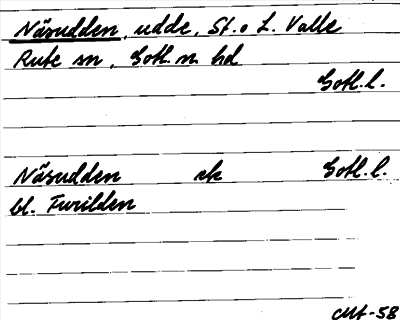 Näsudden, udde, St. o L. Valle
Rute sn, Gotl. n. hd
Gotl. l.
Näsudden ek Gotl. l.
bl. Furilden
CMf-58